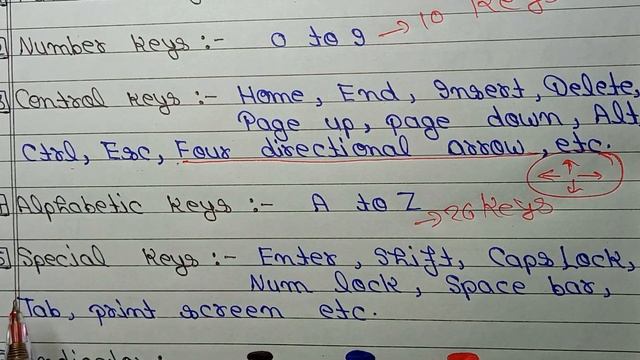 Number keys :- 0 to 9 → 10 keys
Central keys :- Home, End, Insert, Delete,
Page up, page down, Alt
Ctrl, Esc, Four directional arrow, etc.
Alphabetic keys :- A to Z → 26 keys
5 Special keys :- Enter, Shift, Caps Lock,
Num lock, Space bar,
Tab, print screen etc.